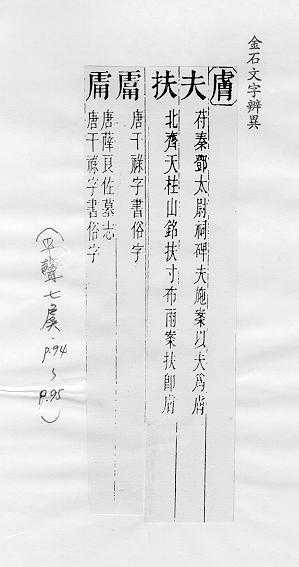 金石文字辨異
膚
夫 苻秦鄧太尉祠碑夫施案以夫為膚
扶 北齊天柱山銘扶寸布雨案扶即膚
唐干祿字書俗字
唐薛良佐墓志
唐干祿字書俗字
(平聲七虞·P.94~P.95)